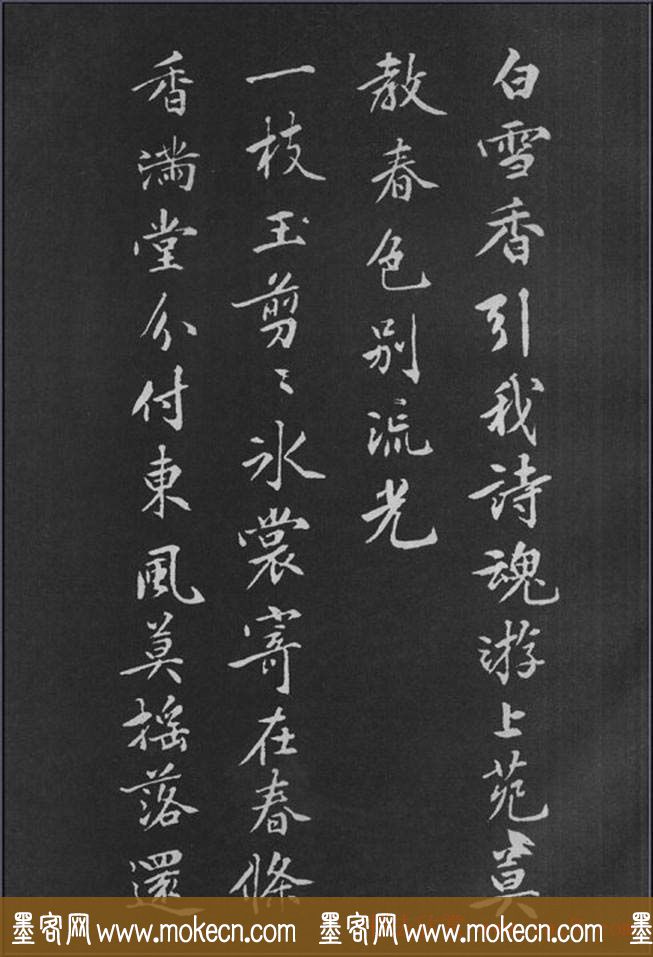 白雪香引我詩魂游上苑莫
教春色别流光
一枝玉剪〻氷裳寄在春條
香滿堂分付東風莫摇落還
墨客网 www.mokecn.com 墨客网 www.mokecn.com